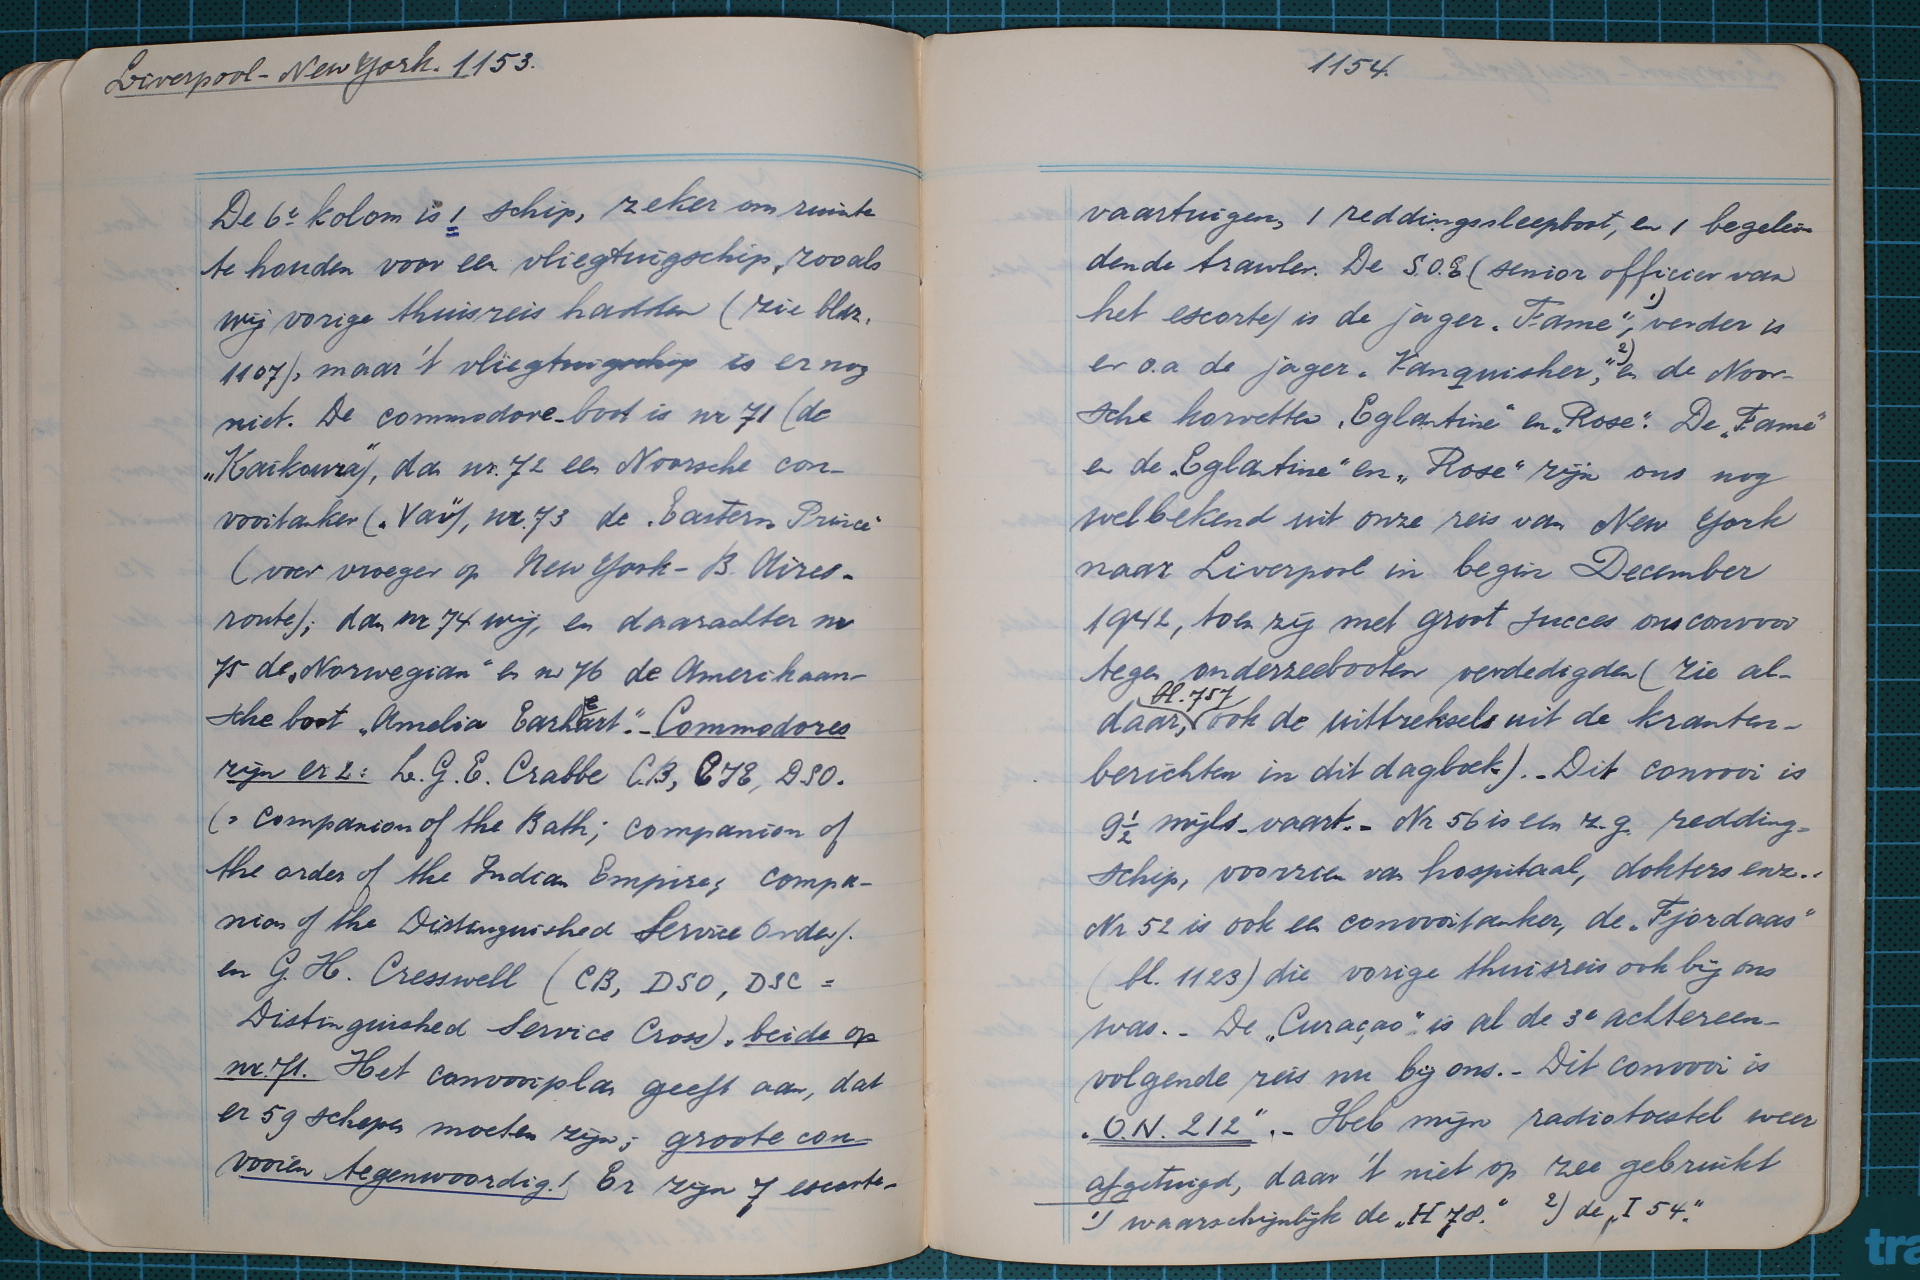 Liverpool - New York. 1153.
De 6e kolom is 1 schip, zeker om ruimte
te houden voor een vliegtuigschip, zooals
wij vorige thuisreis hadden (zie blz.
1107), maar 't vliegtuigschip is er nog
niet. De commodore-boot is nr 71 (de
„Kaikoura"), dan nr. 72 een Noorsche con-
vooitanker („Vav"), nr. 73 de „Eastern Prince"
(voer vroeger op New York - B. Aires-
route); dan nr 74 wij, en daarachter nr
75 de „Norwegian" en nr 76 de Amerikaan-
sche boot „Amelia Earheart". - Commodores
zijn er 2: L.G.E. Crabbe C.B, CIE, DSO.
(= Companion of the Bath; companion of
the order of the Indian Empire; compa-
nion of the Distinguished Service Order).
en G.H. Cresswell (CB, DSO, DSC =
Distinguished Service Cross), beide op
nr. 71. Het convooiplan geeft aan, dat
er 59 schepen moeten zijn; groote con-
vooien tegenwoordig! Er zijn 7 escorte-
1154.
vaartuigen, 1 reddingssleepboot, en 1 begelei-
dende trawler. De S.O.E (senior officier van
het escorte) is de jager „Fame", 1) verder is
er o.a de jager „Vanquisher," 2) en de Noor-
sche korvetten „Eglantine" en „Rose". De „Fame"
en de „Eglantine" en „Rose" zijn ons nog
welbekend uit onze reis van New York
naar Liverpool in begin December
1942, toen zij met groot succes ons convooi
tegen onderzeebooten verdedigden (zie al-
daar, bl. 757 ook de uittreksels uit de kranten-
berichten in dit dagboek). - Dit convooi is
9½ mijls-vaart. - Nr 56 is een z.g. redding-
schip, voorzien van hospitaal, dokters enz..
Nr 52 is ook een convooitanker, de „Fjordaas"
(bl. 1123) die vorige thuisreis ook bij ons
was. - De „Curaçao" is al de 3e achtereen-
volgende reis nu bij ons. - Dit convooi is
„O.N. 212". - Heb mijn radiotoestel weer
afgetuigd, daar 't niet op zee gebruikt
1) waarschijnlijk de „H 78." 2) de „I 54."
tra